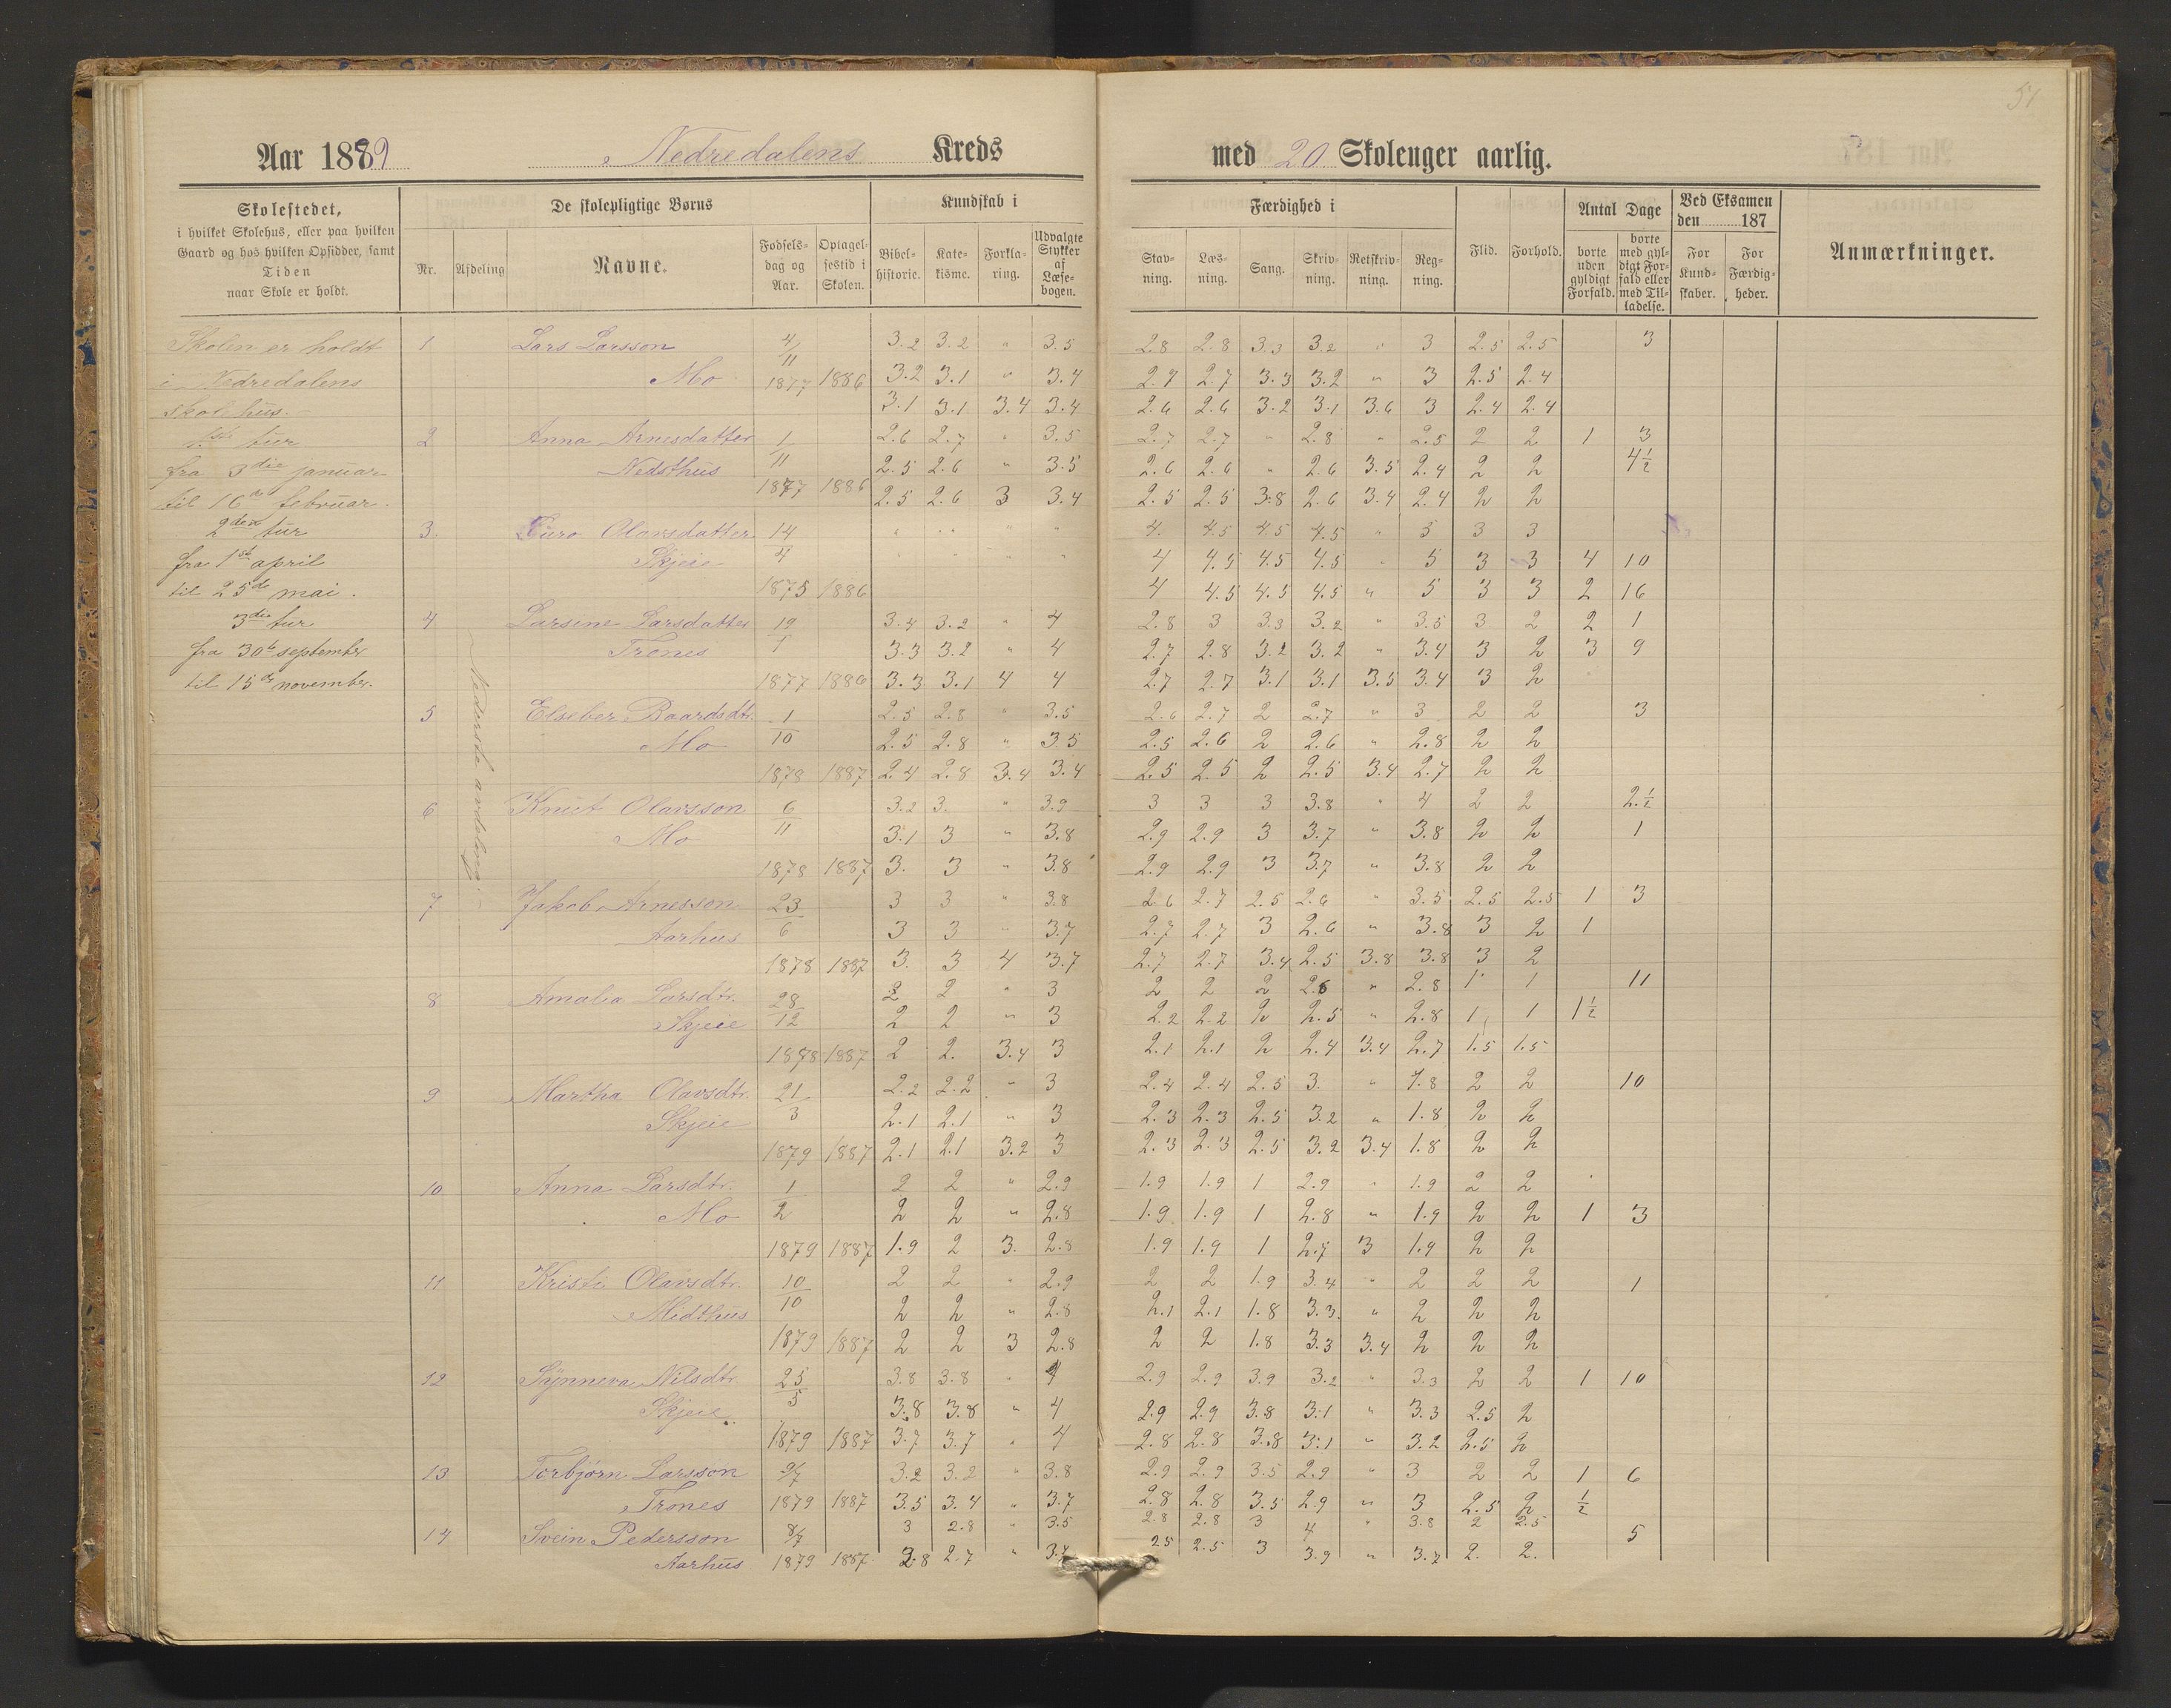 54
Aar 1889 Nedredalens Kreds med 20 Skoleuger aarlig.
Skolestedet,
i hvilket Skolehus, eller paa hvilken
Gaard og hos hvilken Opsidder, samt
Tiden
naar Skole er holdt.
De skolepligtige Børns
Nr. Afdeling Navne. Fødselsdag og Aar. Optagelsestid i Skolen.
Kundskab i
Bibelhistorie. Katekisme. Forklaring. Udvalgte Stykker af Læsebogen.
Færdighed i
Stavning. Læsning. Sang. Skrivning. Retskrivning. Regning.
Flid. Forhold.
Antal Dage
borte uden gyldigt Forfald. borte med gyldigt Forfald eller med Tilladelse.
Ved Eksamen den 187
For Kundskaber. For Færdigheder.
Anmærkninger.
Skolin er holdt
i Nedredalens
skolhus.
1ste tur
fra 3die januar
til 16de februar.
2den tur
fra 1ste april
til 25de mai.
3die tur
fra 30te september
til 15de november.
Nederste avdeling
1 Lars Larsson 4/11 3.2 3.2 " 3.5 2.8 2.8 3.3 3.2 " 3 2.5 2.5 3
Mo 1877 1886 3.2 3.1 " 3.4 2.7 2.7 3.3 3.2 " 3 2.5 2.4
3.1 3.1 3.4 3.4 2.6 2.6 3.2 3.1 3.6 3 2.4 2.4
2 Anna Arnesdatter 1/11 2.6 2.7 " 3.5 2.7 2.7 " 2.8 " 2.5 2 2 1 3
Nedsthus 2.5 2.6 " 3.5 2.6 2.6 " 2.6 3.5 2.4 2 2 4½
1877 1886 2.5 2.6 3 3.4 2.5 2.5 3.8 2.6 3.4 2.4 2 2
3. Guro Olavsdatter 14/4 " " " " 4. 4.5 4.5 4.5 " 5 3 3
Skjeie " " " " 4 4.5 4.5 4.5 " 5 3 3 4 10
1875 1886 4 4.5 4.5 4.5 " 5 3 3 2 16
4 Larsine Larsdatter 19/1 3.4 3.2 " 4 2.8 3 3.3 3.2 " 3.5 3 2 2 1
Trones 3.3 3.2 " 4 2.7 2.8 3.2 3.2 " 3.4 3 2 3 9
1877 1886 3.3 3.1 4 4 2.7 2.7 3.1 3.1 3.5 3.4 3 2
5 Elseber Baardsdtr. 1/10 2.5 2.8 " 3.5 2.6 2.7 2 2.7 " 3 2 2 3
Mo 2.5 2.8 " 3.5 2.5 2.6 2 2.6 " 2.8 2 2
1878 1887 2.4 2.8 3.4 3.4 2.5 2.5 2 2.5 3.4 2.7 2 2
6 Knut Olavsson 6/11 3.2 3. " 3.9 3 3 3 3.8 " 4 2 2 2.½
Mo 3.1 3 " 3.8 2.9 2.9 3 3.7 " 3.8 2 2 1
1878 1887 3. 3 " 3.8 2.9 2.9 3 3.7 " 3.8 2 2
7 Jakob Arnesson 23/6 3 3 " 3.8 2.6 2.7 2.5 2.6 " 3.5 2.5 2.5 1 3
Aarhus 3 3 " 3.7 2.7 2.7 3 2.6 " 3.8 3 2 1
1878 1887 3. 3 4 3.7 2.7 2.7 3.4 2.5 3.8 3.8 3 2
8 Amalia Larsdtr. 28/12 2 2 " 3 2 2 2 2.6 " 2.8 1 1 11
Skjeie 2 2 " 3 2.2 2.2 2 2.5 " 2.8 1 1 1½
1878 1887 2 2. 3.4 3 2.1 2.1 2 2.4 3.4 2.7 1.5 1.5
9 Martha Olavsdtr. 21/3 2.2 2.2 " 3 2.4 2.4 2.5 3. " 1.8 2 2 10
Skjeie 2.1 2.1 " 3 2.3 2.3 2.5 3.2 " 1.8 2 2
1879 1887 2.1 2.1 3.2 3 2.3 2.3 2.5 3.2 3.4 1.8 2 2
10 Anna Larsdtr. 1/2 2 2 " 2.9 1.9 1.9 1 2.9 " 1.9 2 2
Mo 2 2 " 2.8 1.9 1.9 1 2.8 " 1.9 2 2 1 3
1879 1887 1.9 2 3. 2.8 1.9 1.9 1 2.7 3 1.9 2 2
11 Kristi Olavsdtr. 10/10 2 2 " 2.9 2 2 1.9 3.4 " 2 2 2 1
Midthus 2 2 " 2.8 2.1 2.1 1.8 3.3 " 2 2 2
1879 1887 2 2 3 2.8 2 2 1.8 3.3 3.4 2 2 2
12 Synneva Nilsdtr. 25/5 3.8 3.8 " 4 2.9 2.9 3.9 3.2 " 3.3 2 2 1 10
Skjeie 3.8 3.8 " 4 2.9 2.9 3.8 3.1 " 3.3 2.5 2
1879 1887 3.7 3.7 " 4 2.8 2.8 3.8 3.1 " 3.2 2.5 2
13 Torbjørn Larsson 9/7 3.2 3.2 " 3.8 2.9 2.9 3.5 2.9 " 3 2 2 1 6
Trones 1879 1887 3.5 3.4 " 3.7 2.8 2.8 3.5 2.9 " 3 2.5 2 ½
14 Svein Pedersson 8/7 3 2.8 " 3.5 2.8 2.8 3 4 " 3.8 2 2.5 5
Aarhus 1879 1887 2.8 2.7 " 3.4 2.5 2.5 3 3.9 " 3.7 2. 2.